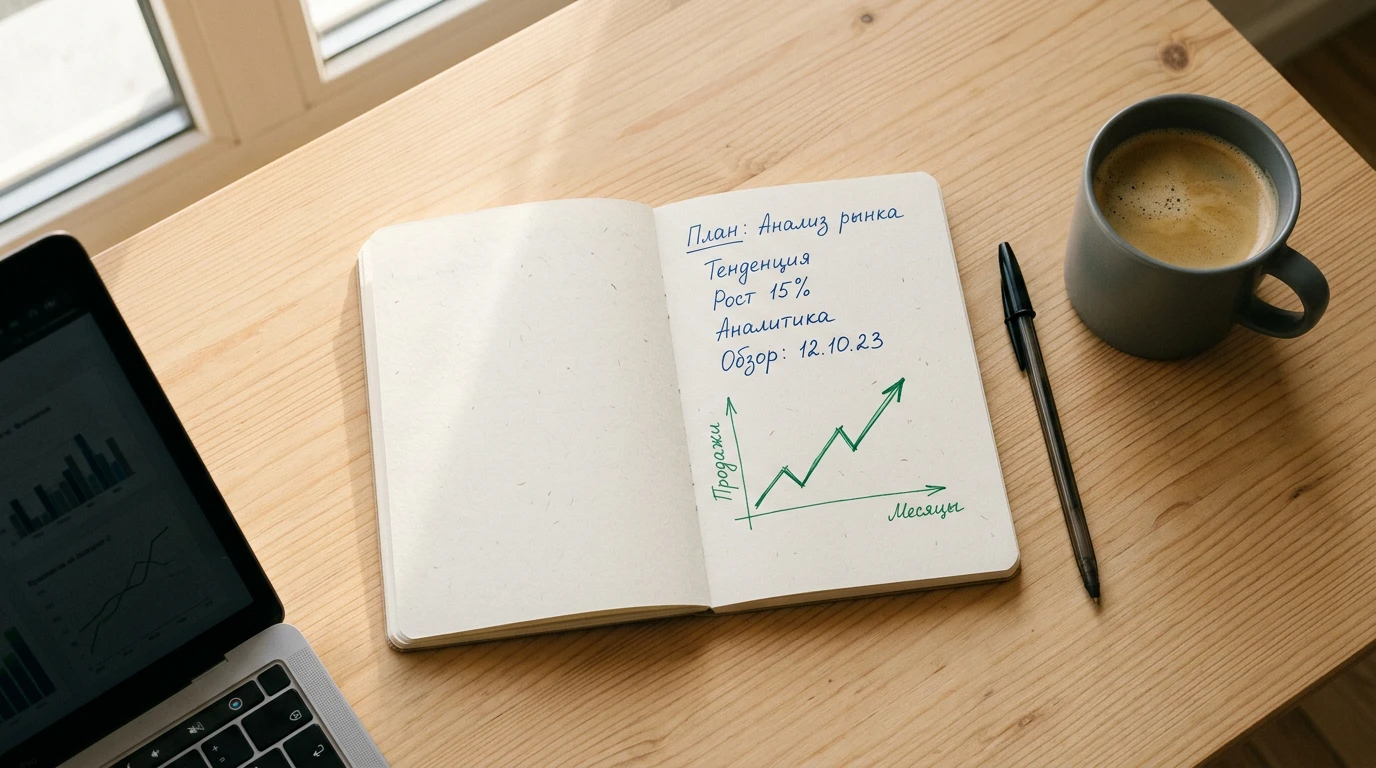 План: Анализ рынка
Тенденция
Рост 15%
Аналитика
Обзор: 12.10.23
Продажи
Месяцы